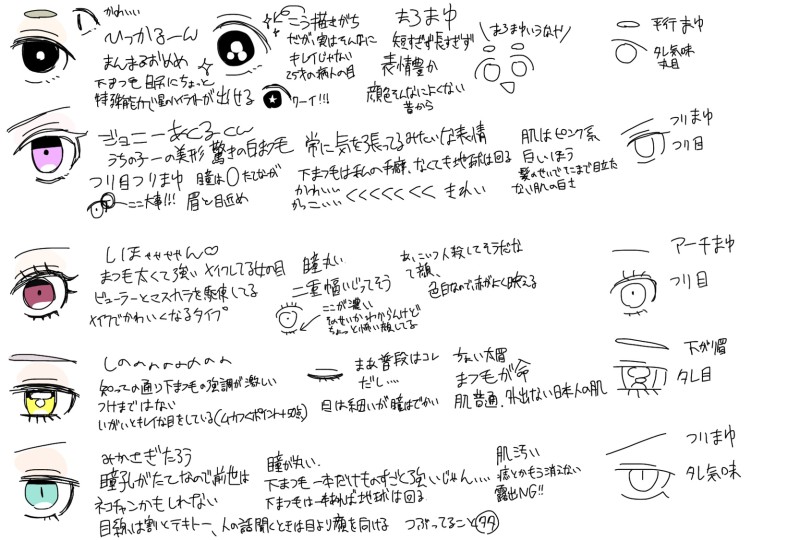 かわいい
ひっかるーん
まんまるおめめ
下まつ毛目尻にちょっと
特殊能力で星のハイライトが出せる
こう描きがち
だが実はそんなに
キレイじゃない
25才の病人の目
ワーイ!!!
まろまゆ
短すぎず長すぎず
表情豊か
顔色そんなによくない
昔から
まろまゆいうなや
平行まゆ
タレ気味
丸目
ジョニーあくるくん
うちの子一の美形 驚きの白まつ毛
つり目つりまゆ 瞳は〇たてなが
ここ大事!!! 眉と目近め
常に気を張ってるみたいな表情
下まつ毛は私の手癖、なくても地球は回る
かわいい
かっこいい くくくくくくく きれい
肌はピンク系
白いほう
髪のせいでそこまで目立た
ない肌の白さ
つりまゆ
つり目
しほゃゃゃゃん♡
まつ毛太くて強い メイクしてる女の目
ビューラーとマスカラを駆使してる
メイクでかわいくなるタイプ
瞳丸い
二重幅いじってそう
ここが濃い
そのせいかわからんけど
ちょっと怖い顔してる
あ、こいつ人殺してそうだな
て顔、
色白なので赤がよく映える
アーチまゆ
つり目
しのののののの
知っての通り下まつ毛の強調が激しい
つけまではない
いがいとキレイな目をしている(ムカつくポイント+50点)
まぁ普段はコレ
だし....
目は細いが瞳はでかい
ちょい太眉
まつ毛が命
肌普通、外出ない日本人の肌
下がり眉
タレ目
みかさぎたろう
瞳孔がたてなので前世は
ネコチャンかもしれない
目線は割とテキトー、人の話聞くときは目より顔を向ける つぶってること多々
瞳が丸い、
下まつ毛一本だけものすごく強いじゃん....
下まつ毛は一本あれば地球は回る
肌汚い
痣とかもう消えない
露出NG!!
つりまゆ
タレ気味